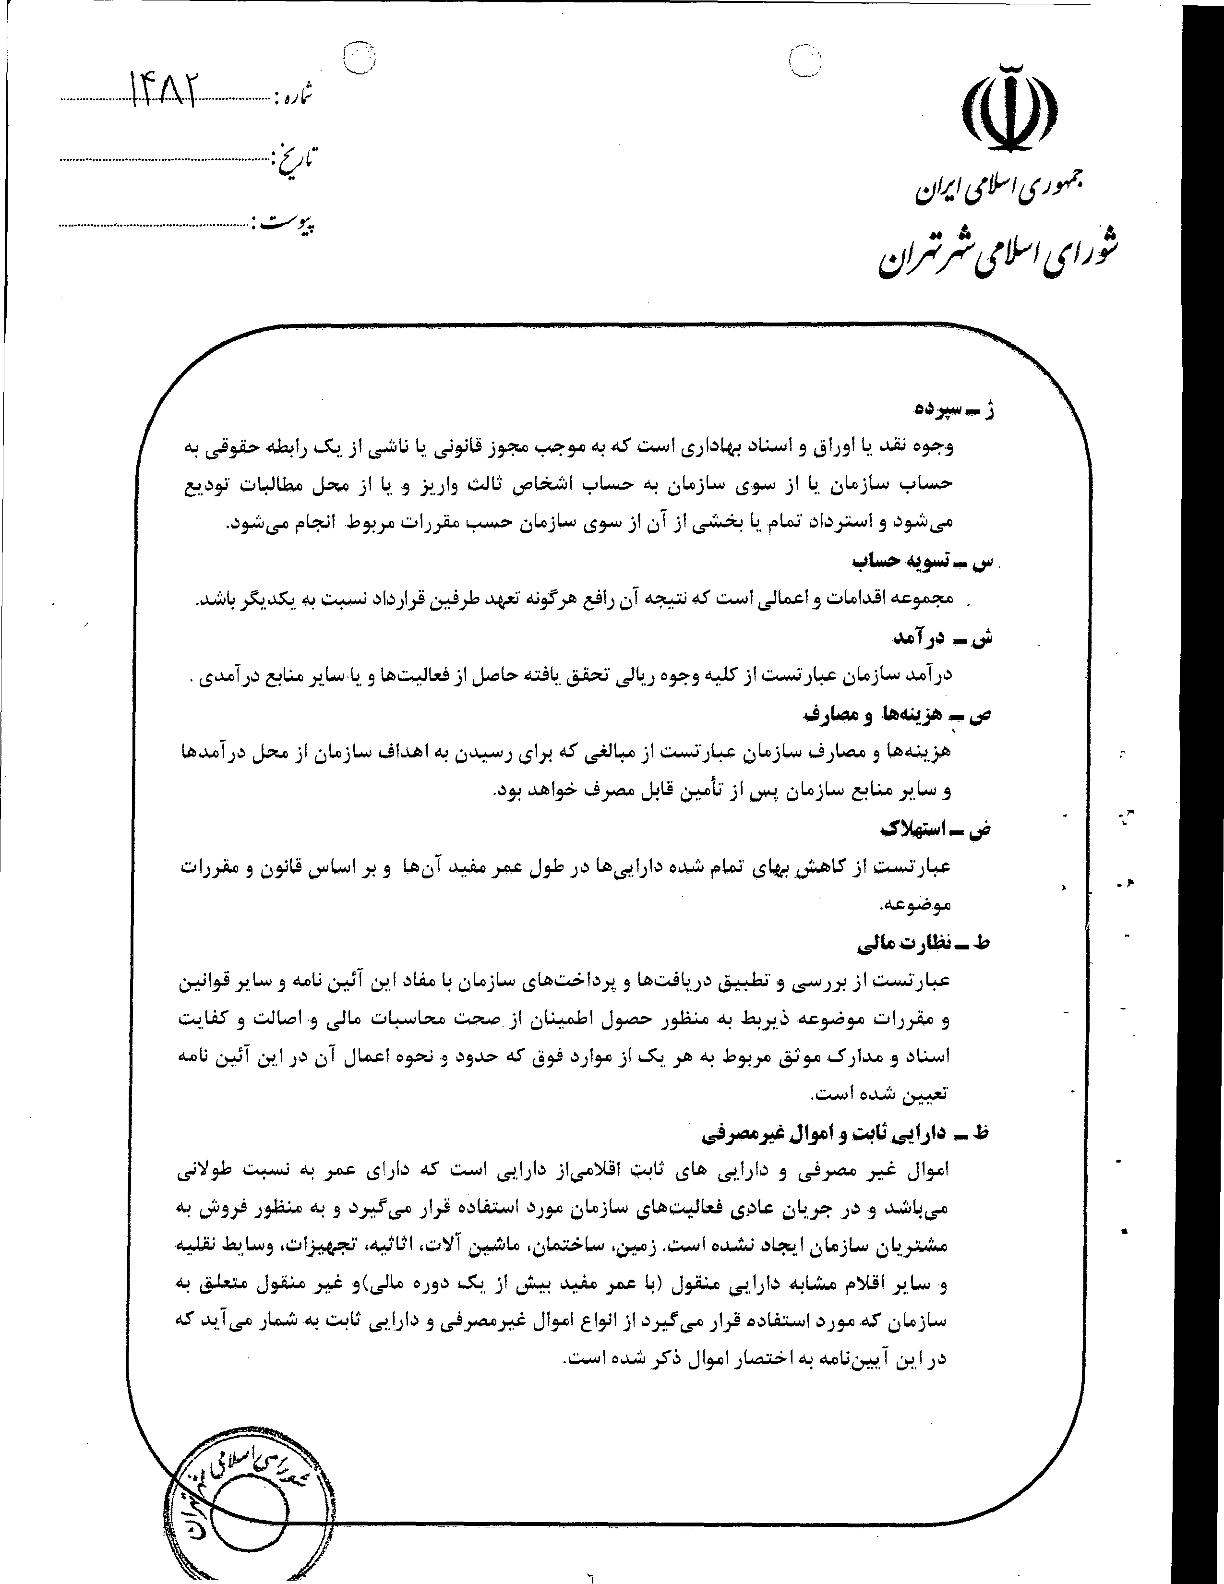 شماره: ۱۴۸۲
تاریخ:
پیوست:
جمهوری اسلامی ایران
شورای اسلامی شهر تهران
ژ ـ سپرده
وجوه نقد یا اوراق و اسناد بهاداری است که به موجب مجوز قانونی یا ناشی از یک رابطه حقوقی به
حساب سازمان یا از سوی سازمان به حساب اشخاص ثالث واریز و یا از محل مطالبات تودیع
می‌شود و استرداد تمام یا بخشی از آن از سوی سازمان حسب مقررات مربوط انجام می‌شود.
س ـ تسویه حساب
مجموعه اقدامات و اعمالی است که نتیجه آن رافع هرگونه تعهد طرفین قرارداد نسبت به یکدیگر باشد.
ش ـ درآمد
درآمد سازمان عبارتست از کلیه وجوه ریالی تحقق یافته حاصل از فعالیت‌ها و یا سایر منابع درآمدی .
ص ـ هزینه‌ها و مصارف
هزینه‌ها و مصارف سازمان عبارتست از مبالغی که برای رسیدن به اهداف سازمان از محل درآمدها
و سایر منابع سازمان پس از تأمین قابل مصرف خواهد بود.
ض ـ استهلاک
عبارتست از کاهش بهای تمام شده دارایی‌ها در طول عمر مفید آن‌ها و بر اساس قانون و مقررات
موضوعه.
ط ـ نظارت مالی
عبارتست از بررسی و تطبیق دریافت‌ها و پرداخت‌های سازمان با مفاد این آئین نامه و سایر قوانین
و مقررات موضوعه ذیربط به منظور حصول اطمینان از صحت محاسبات مالی و اصالت و کفایت
اسناد و مدارک موثق مربوط به هر یک از موارد فوق که حدود و نحوه اعمال آن در این آئین نامه
تعیین شده است.
ظ ـ دارایی ثابت و اموال غیرمصرفی
اموال غیر مصرفی و دارایی های ثابت اقلامی‌از دارایی است که دارای عمر به نسبت طولانی
می‌باشد و در جریان عادی فعالیت‌های سازمان مورد استفاده قرار می‌گیرد و به منظور فروش به
مشتریان سازمان ایجاد نشده است. زمین، ساختمان، ماشین آلات، اثاثیه، تجهیزات، وسایط نقلیه
و سایر اقلام مشابه دارایی منقول (با عمر مفید بیش از یک دوره مالی)و غیر منقول متعلق به
سازمان که مورد استفاده قرار می‌گیرد از انواع اموال غیرمصرفی و دارایی ثابت به شمار می‌آید که
در این آیین‌نامه به اختصار اموال ذکر شده است.
شورای اسلامی شهر تهران
٦